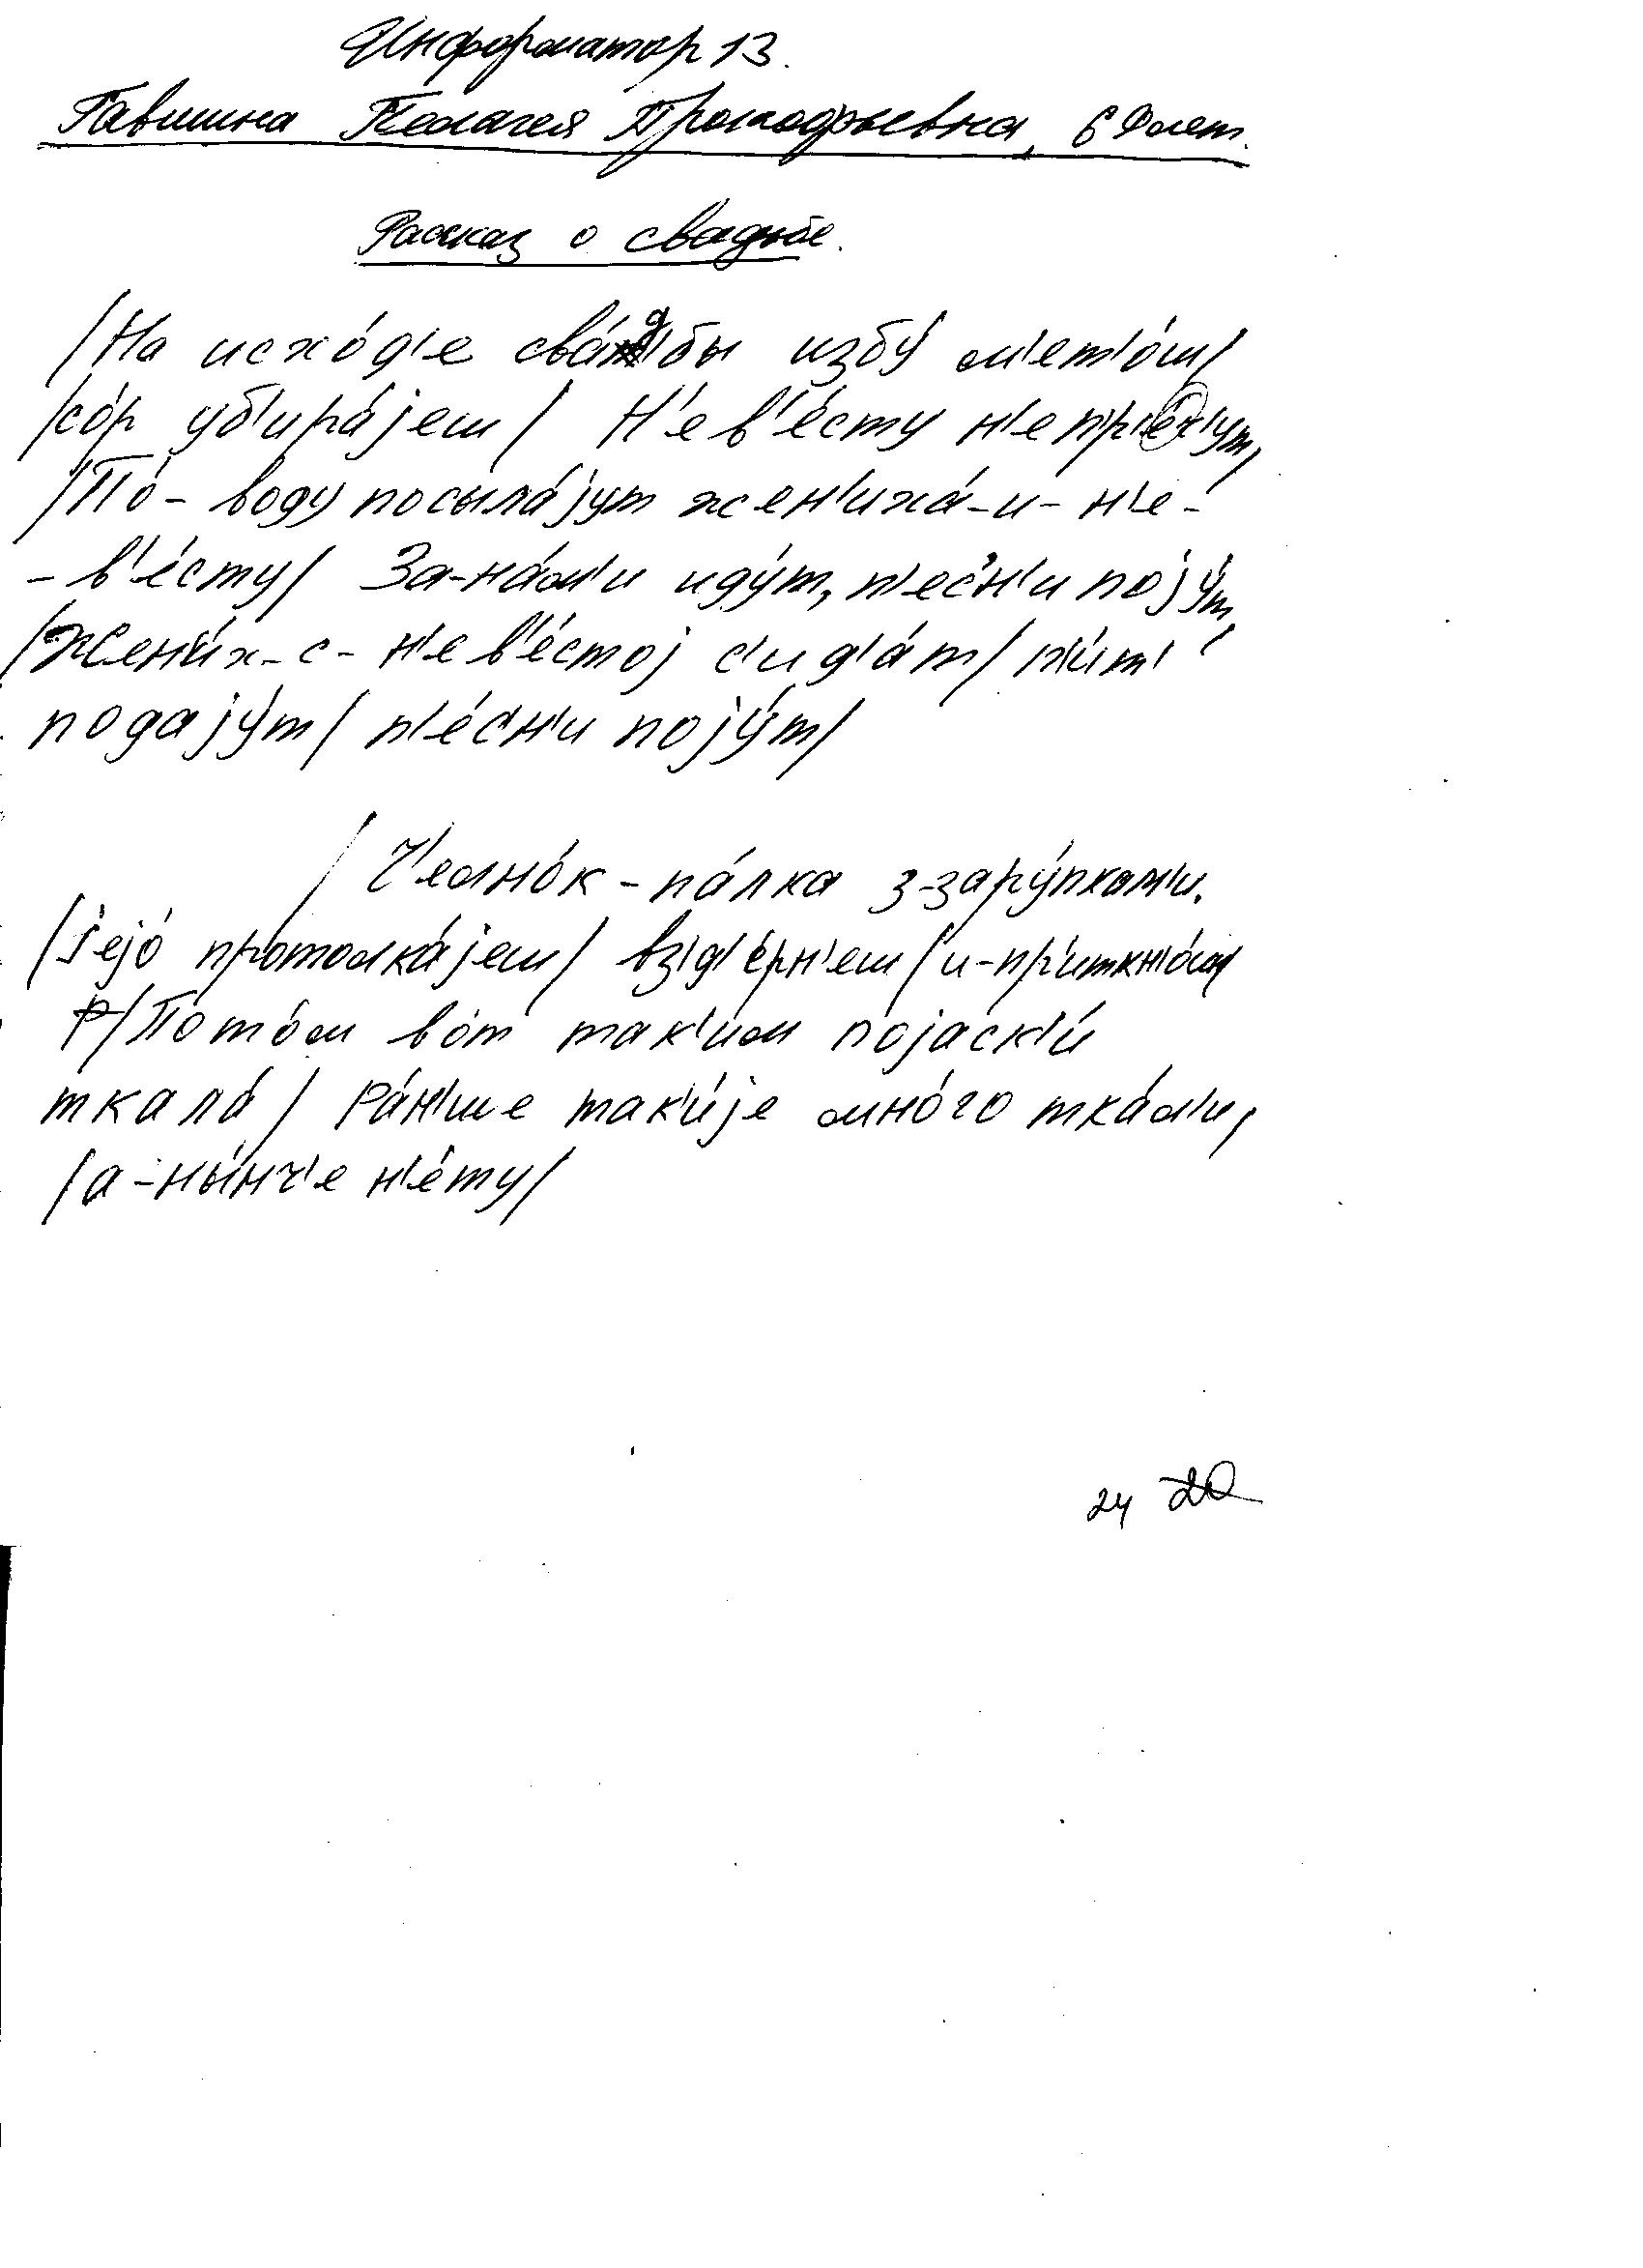 Информатор 13.
Гавшина Пелагея Прокофьевна, 69 лет.
Рассказ о свадьбе.
/На исхо́д'е сва́д'бы избу́ м'ет'о́ш/
/со́р уб'ира́jеш/ Н'ев'е́сту н'е пр'е́ч'ут,
/По́-воду посыла́jут жен'иха́-и-н'е-
-в'е́сту/ За-на́м'и иду́т, п'ес'н'и поjу́т,
/Жен'и́х-с-н'ев'е́стоj с'ид'а́т/ п'и́т'
подаjу́т/ п'е́с'н'и поjу́т/
/Ч'елно́к-па́лка з-зару́пкам'и.
/jejо́ протолка́jеш/ вз'д'е́рн'еш/и-пр'иткн'о́ш/
/Пото́м во́т так'и́м поjаск'и́
ткала́/ Ра́н'ше так'и́jе мно́го тка́л'и,
/а-ны́нч'е н'е́ту/
24 20